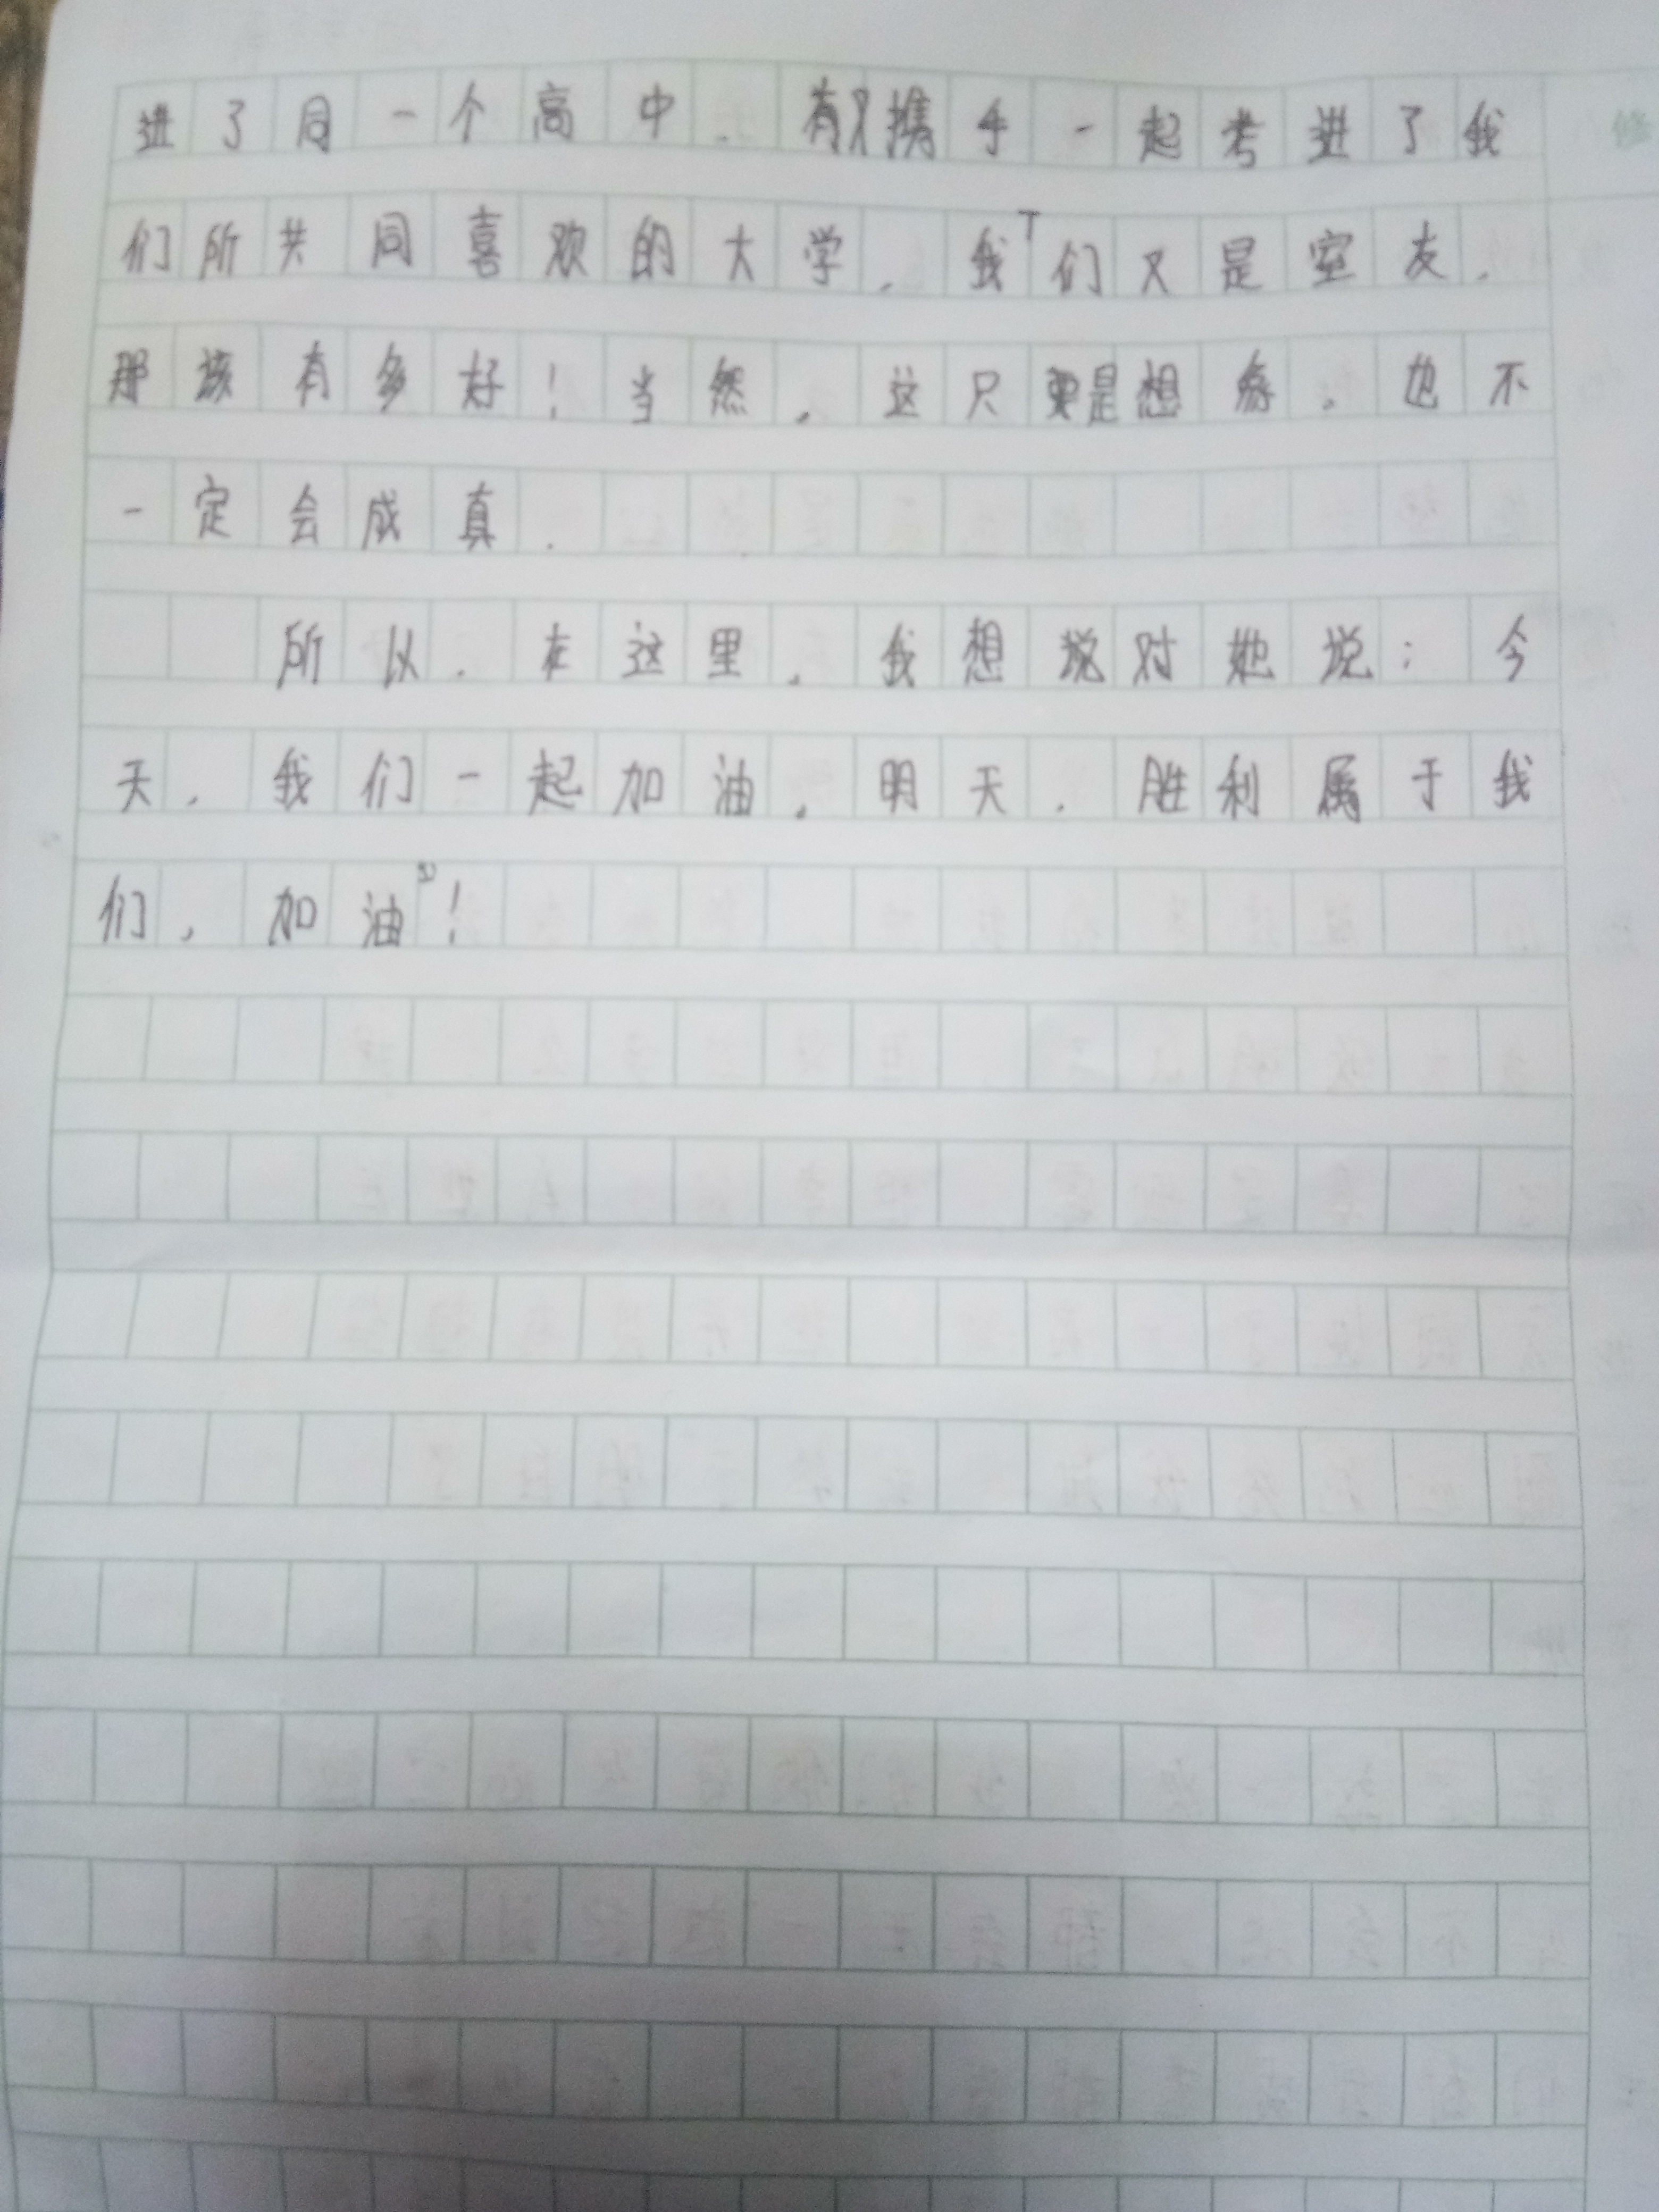 进了同一个高中.有又携手一起考进了我
们所共同喜欢的大学.我们又是室友.
那该有多好!当然.这只要是想像.也不
一定会成真.
所以.在这里.我想说对她说:今
天.我们一起加油.明天.胜利属于我
们,加油!
修